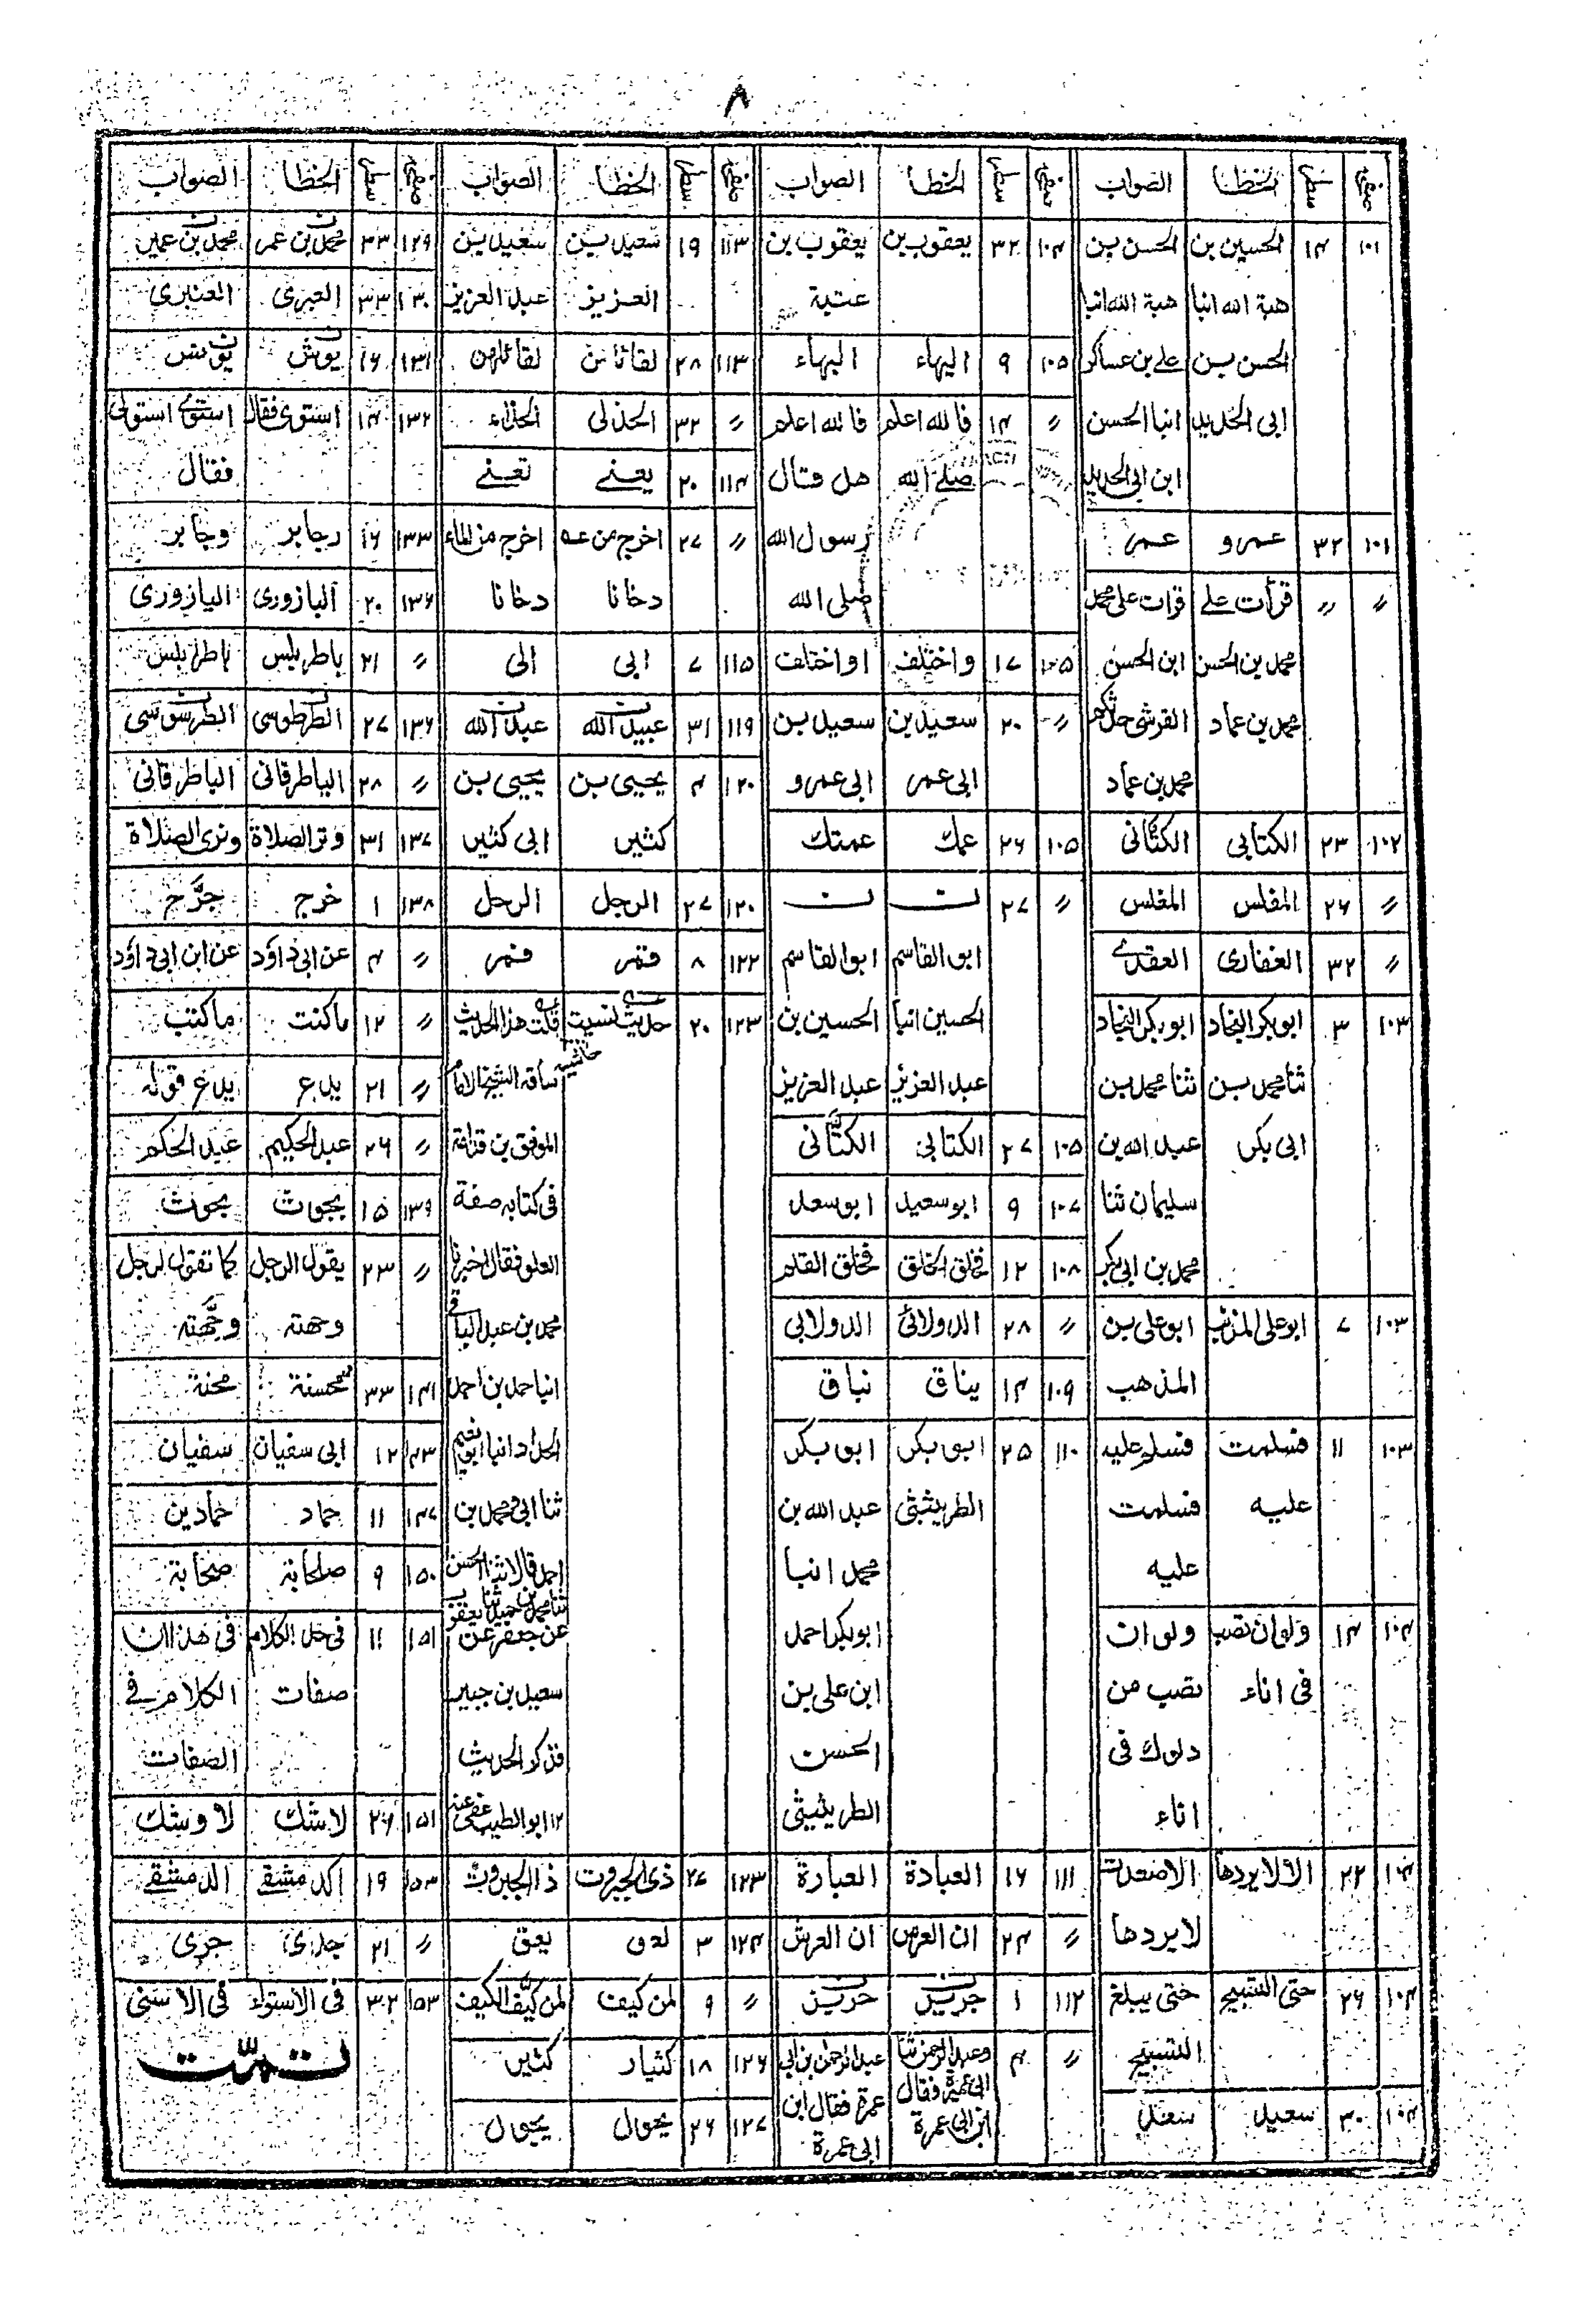 ٨
صفحة سطر الخطأ الصواب
١٠١ ١٤ الحسين بن الحسن بن
هبة الله انبا هبة الله انبا
الحسن بن على بن عساكر
ابى الحديد انبا الحسن
ابن ابى الحديد
١٠١ ٣٢ عمرو عمر
〃 〃 قرأت على قرات على محمد
محمد بن الحسن ابن الحسن
محمد بن عماد القرشى حدثكم
محمد بن عماد
١٠٢ ٢٣ الكتابى الكتانى
〃 ٢٦ المفلس المغلس
〃 ٣٢ الغفارى العقدى
١٠٣ ٣ ابو بكر النجاد ابو بكر النجاد
ثنا محمد بن ثنا محمد بن
ابى بكر عبد الله بن
سليمان ثنا
محمد بن ابى بكر
١٠٣ ٧ ابو على المذهب ابو على بن
المذهب
١٠٣ ١١ فسلمت فسلم عليه
عليه فسلمت
عليه
١٠٤ ١٤ ولو ان تصب ولو ان
فى اناء تصب من
دلوك فى
اناء
١٠٤ ٢٢ الا لا يردها الا صعدت
لا يردها
١٠٤ ٢٦ حتى التسبيح حتى يبلغ
التسبيح
١٠٤ ٣٠ سعيد سعد
صفحة سطر الخطأ الصواب
١٠٤ ٣٢ يعقوب بن يعقوب بن
عتبة
١٠٥ ٩ البهاء البهاء
〃 ١٤ فالله اعلم فالله اعلم
صلى الله هل قال
رسول الله
صلى الله
١٠٥ ١٧ واختلف او اختلف
〃 ٢٠ سعيد بن سعيد بن
ابى عمر ابى عمرو
١٠٥ ٢٦ عمك عمتك
〃 ٢٧ ت ت
ابو القاسم ابو القاسم
الحسين انبا الحسين بن
عبد العزيز عبد العزيز
١٠٥ ٢٧ الكتابى الكتّانى
١٠٧ ٩ ابو سعيد ابو سعد
١٠٨ ١٢ فخلق الخلق فخلق القلم
〃 ٢٨ الدولائى الدولابى
١٠٩ ١٤ يناق نباق
١١٠ ٢٥ ابو بكر ابو بكر
الطريثيثى عبد الله بن
محمد انبا
ابو بكر احمد
ابن على بن
الحسن
الطريثيثى
١١١ ١٦ العبادة العبارة
〃 ٢٤ ان العرض ان العرش
١١٢ ١ جرير حريز
〃 ٤ وعبد الرحمن ثنا عبد الرحمن بن ابى
ابى عمرة فقال عمرة فقال ابن
ابن ابى عمرة ابى عمرة
صفحة سطر الخطأ الصواب
١١٣ ١٩ سعيد بن سعيد بن
العزيز عبد العزيز
١١٣ ٢٨ لقائلن لقائلهن
〃 ٣٢ الحذلى الحذاء
١١٤ ٢٠ يعنى تعنى
〃 ٢٧ اخرج من عه اخرج من الماء
دخانا دخانا
١١٥ ٧ ابى الى
١١٩ ٣١ عبيد الله عبد الله
١٢٠ ٤ يحيى بن يحيى بن
كثير ابى كثير
١٢٠ ٢٧ الرجل الرحل
١٢٢ ٨ فمر فمر
١٢٣ ٢٠ حديث لنسيت قلت هذا الحديث
حاشية
ساقه الشيخ الامام
الموفق بن قدامة
فى كتابه صفة
العلو فقال اخبرنا
محمد بن عبد الباقى
انبا حمد بن احمد
الحداد انبا ابو نعيم
ثنا ابى ومحمد بن
احمد قالا ثنا الحسن
ثنا محمد بن حميد ثنا يعقوب
عن جعفر عن
سعيد بن جبير
فذكر الحديث
١٢ ابو الطيب عفى عنه
١٢٣ ٢٧ ذى الجبروت ذا الجبروت
١٢٤ ٣ لعق يعق
〃 ٩ لمن كيف لمن كيَّف الكيف
١٢٦ ١٨ كثيار كثير
١٢٧ ٢٦ يحوال يحيوال
صفحة سطر الخطأ الصواب
١٢٩ ٣٣ محمد بن عمر محمد بن عمير
١٣٠ ٣٣ العبرى العنبرى
١٣١ ١٦ يوش يونس
١٣٢ ١٤ استوى فقال استوى استولى
فقال
١٣٣ ١٦ رجابر وجابر
١٣٦ ٢٠ البازورى اليازورى
〃 ٢١ باطربلس باطرابلس
١٣٦ ٢٧ الطرطوسى الطرسوسى
〃 ٢٨ الباطرقانى الباطرقانى
١٣٧ ٣١ وتر الصلاة ونرى الصلاة
١٣٨ ١ خرج جرَّح
〃 ٤ عن ابى داود عن ابن ابى داود
〃 ١٢ ماكنت ماكتب
〃 ٢١ يدع يدع قوله
〃 ٢٦ عبد الحكيم عبد الحكم
١٣٩ ١٥ يجوث بحوث
〃 ٢٣ يقول الرجل كما تقول لرجل
وجهته وجَّهته
١٤١ ٣٣ محسنة محنة
١٤٣ ١٢ ابى سفيان سفيان
١٤٧ ١١ حماد حماد بن
١٥٠ ٩ صلحابة صحابة
١٥١ ١١ فى حل الكلام فى هذا ان
صفات الكلام فى
الصفات
١٥١ ٢٦ لا شك لا وشك
١٥٣ ١٩ اكد مشقى الدمشقى
〃 ٢١ جدى جرى
١٥٣ ٣٢ فى الاستواء فى الاسنى
تمّت